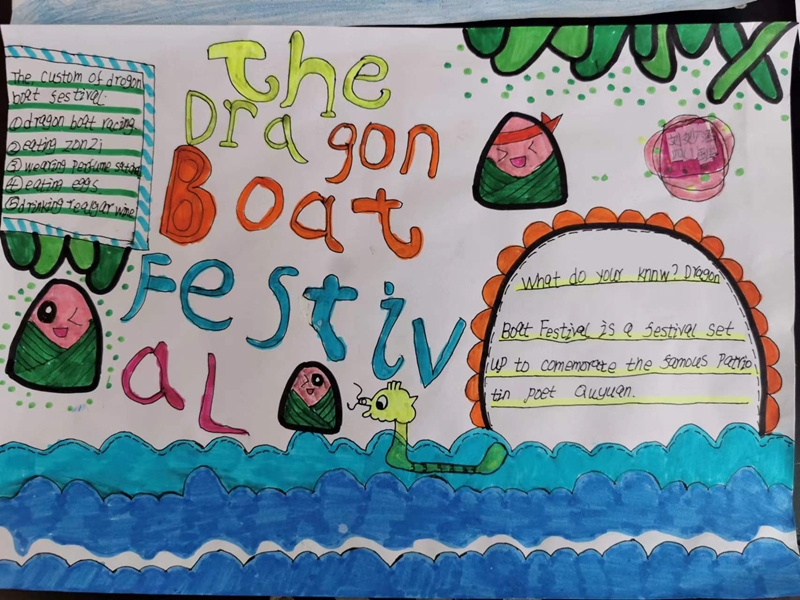 The custom of dragon
boat festival.
①dragon boat racing
②eating zonzi
③wearing perfume
④eating eggs
⑤drinking realgar wine
The
Dragon
Boat
Festiv
aL
What do your know? Dragon
Boat Festival is a festival set
up to comemorate the famous Patrio
tin poet Quyuan.